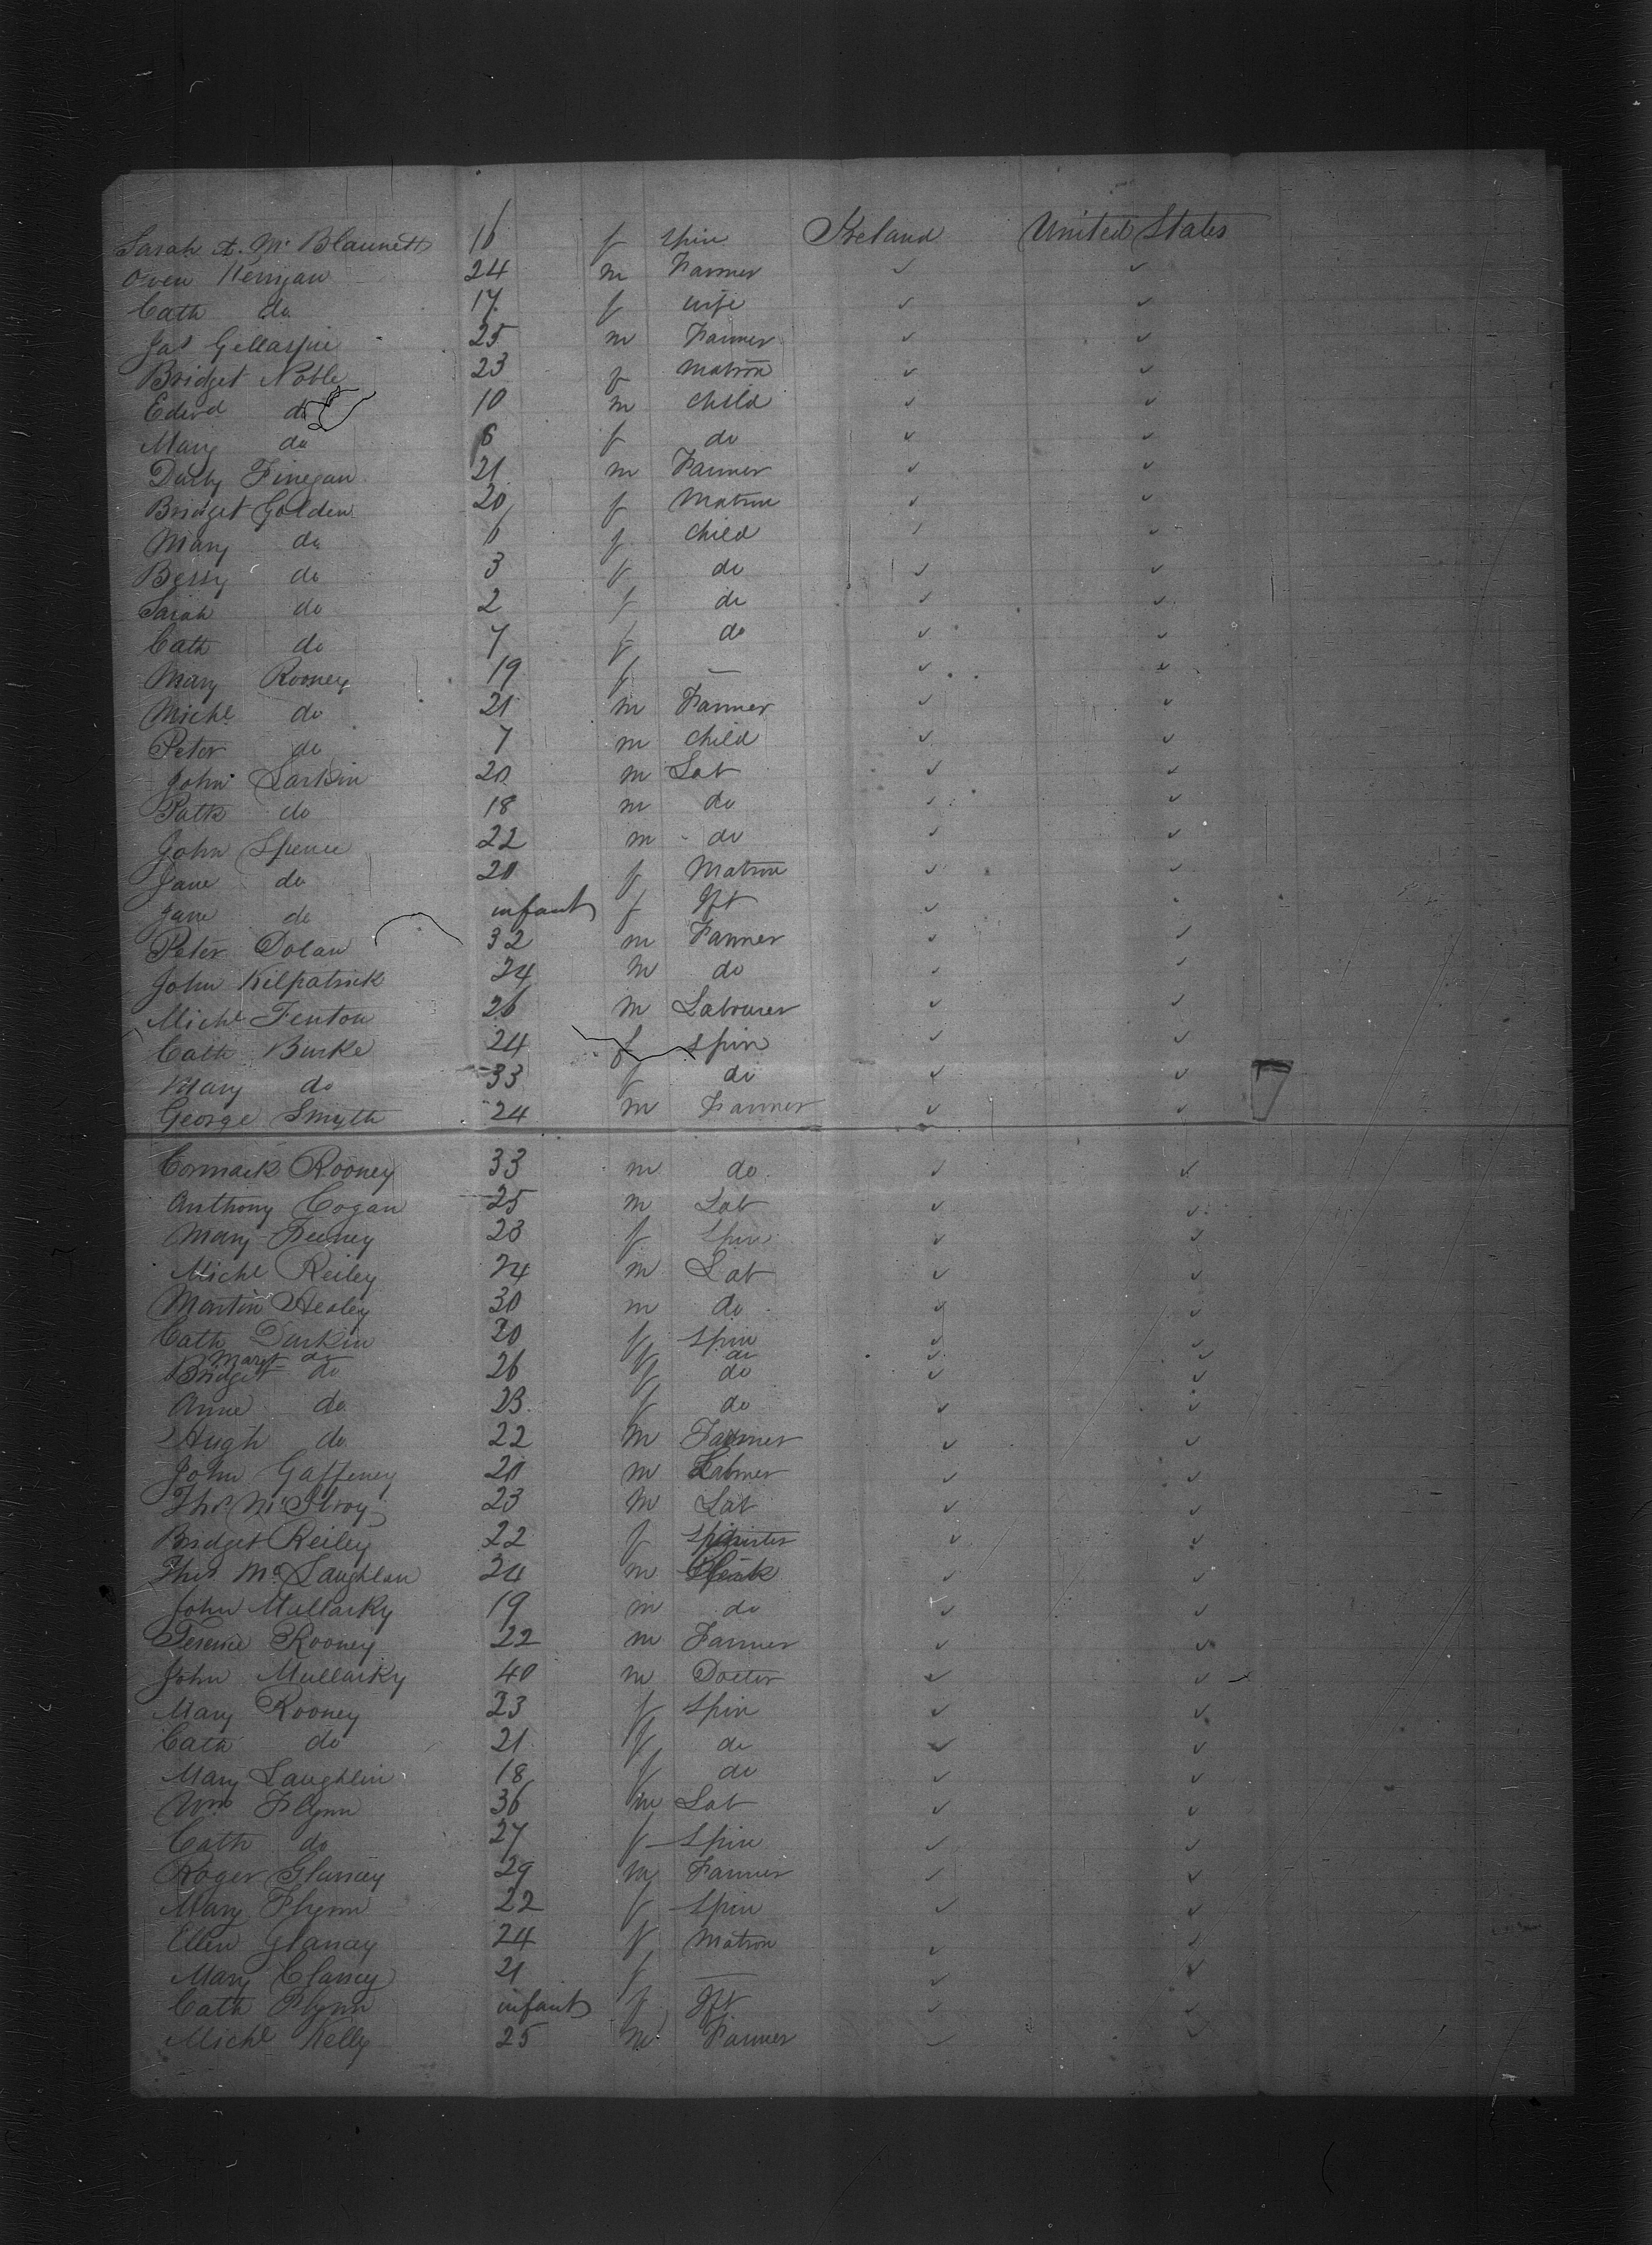 Sarah A. Mc Blaunett 16 f spin Ireland United States
Owen Kerrigan 24 m Farmer ✓ ✓
Cath do 17 f wife ✓ ✓
Jas Gillaspie 25 m Farmer ✓ ✓
Bridget Noble 23 f matron ✓ ✓
Edwd do 10 m child ✓ ✓
Mary do 6 f do ✓ ✓
Darby Finegan 21 m Farmer ✓ ✓
Bridget Golden 20 f Matron ✓ ✓
Mary do 6 f child ✓ ✓
Bessy do 3 f do ✓ ✓
Sarah do 2 f do ✓ ✓
Cath do 7 f do ✓ ✓
Mary Rooney 19 f — ✓ ✓
Michl do 21 m Farmer ✓ ✓
Peter do 7 m child ✓ ✓
John Larkin 20 m Lab ✓ ✓
Patk do 18 m do ✓ ✓
John Spence 22 m do ✓ ✓
Jane do 20 f Matron ✓ ✓
Jane do infant f Ift ✓ ✓
Peter Dolan 32 m Farmer ✓ ✓
John Kilpatrick 24 m do ✓ ✓
Michl Fenton 26 m Labourer ✓ ✓
Cath Burke 24 f spin ✓ ✓
Mary do 33 f do ✓ ✓
George Smyth 24 m Farmer ✓ ✓
Cormack Rooney 33 m do ✓ ✓
Anthony Cogan 25 m Lab ✓ ✓
Mary Feeney 23 f Spin ✓ ✓
Michl Reiley 24 m Lab ✓ ✓
Martin Healey 30 m do ✓ ✓
Cath Durkin 20 f spin ✓ ✓
Margt do f do ✓ ✓
Bridget do 26 f do ✓ ✓
Anne do 23 f do ✓ ✓
Hugh do 22 m Farmer ✓ ✓
John Gaffeney 20 m ✓ ✓
Thos McIlroy 23 m Lab ✓ ✓
Bridget Reiley 22 f spinster ✓ ✓
Thos McLaughlan 24 m Clerk ✓ ✓
John Mullarky 19 m do ✓ ✓
Terence Rooney 22 m Farmer ✓ ✓
John Mullarky 40 m Docter ✓ ✓
Mary Rooney 23 f Spin ✓ ✓
Cath do 21 f do ✓ ✓
Mary Laughlin 18 f do ✓ ✓
Wm Flynn 36 m Lab ✓ ✓
Cath do 27 f Spin ✓ ✓
Roger Glancey 29 m Farmer ✓ ✓
Mary Flynn 22 f Spin ✓ ✓
Ellen Glancey 24 f Matron ✓ ✓
Mary Clancey 21 f — ✓ ✓
Cath Flynn infant f Ift ✓ ✓
Michl Kelly 25 m Farmer ✓ ✓